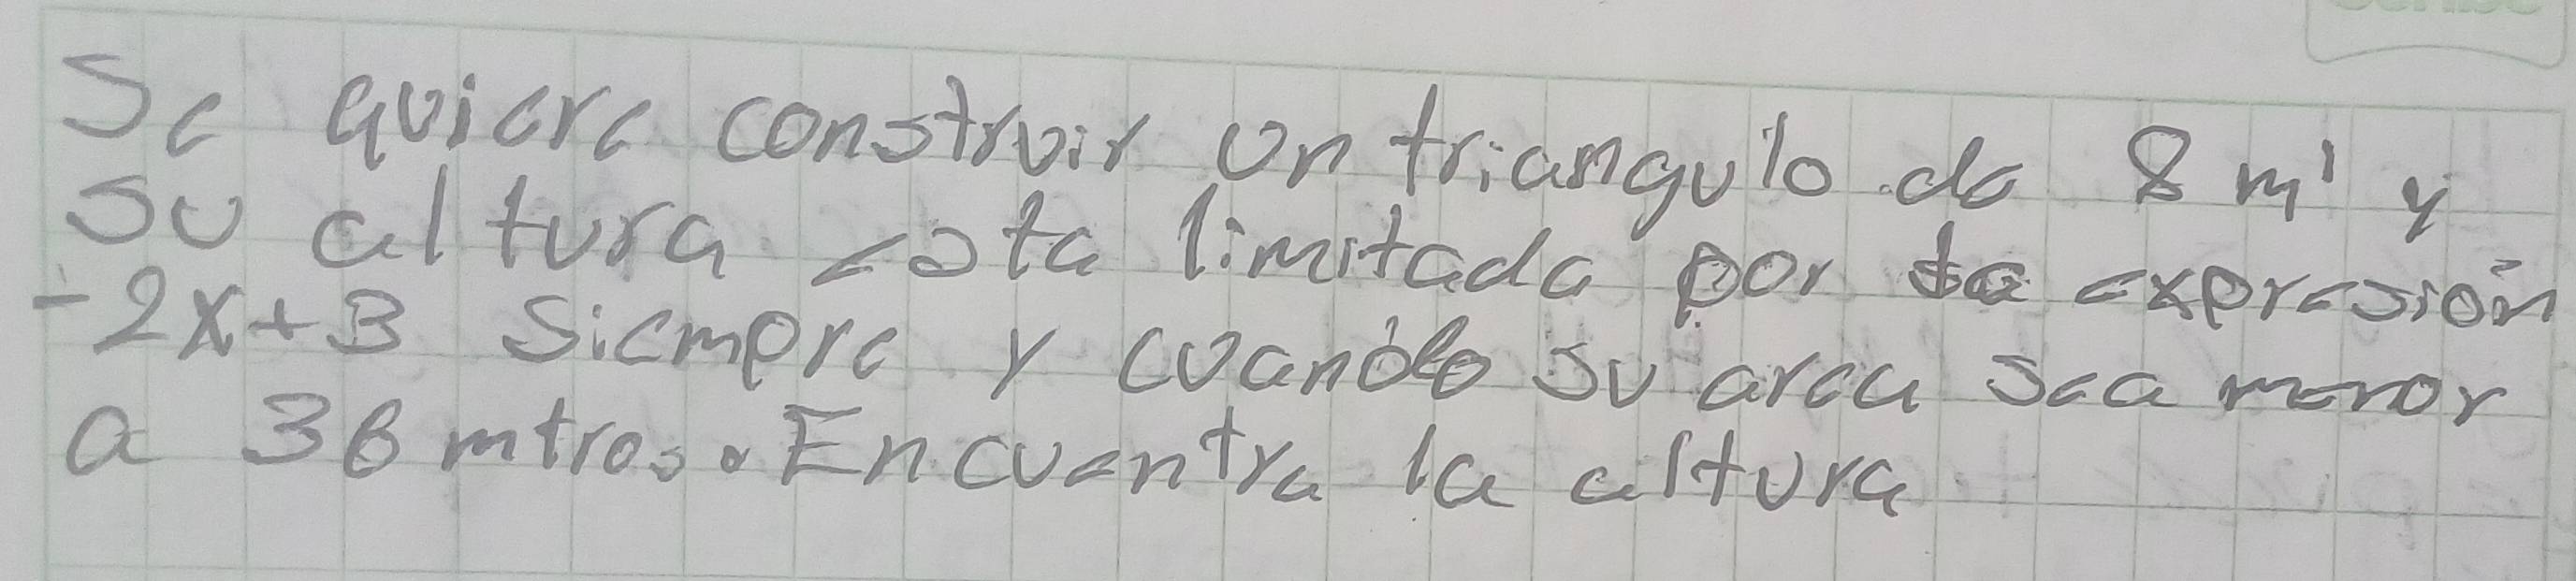 Scribe
Se quiere construir un triangulo de 8 m' y
su altura esta limitada por la expresión
-2x+3 Siempre y cuando su area sea menor
a 36 mtros. Encuentra la altura